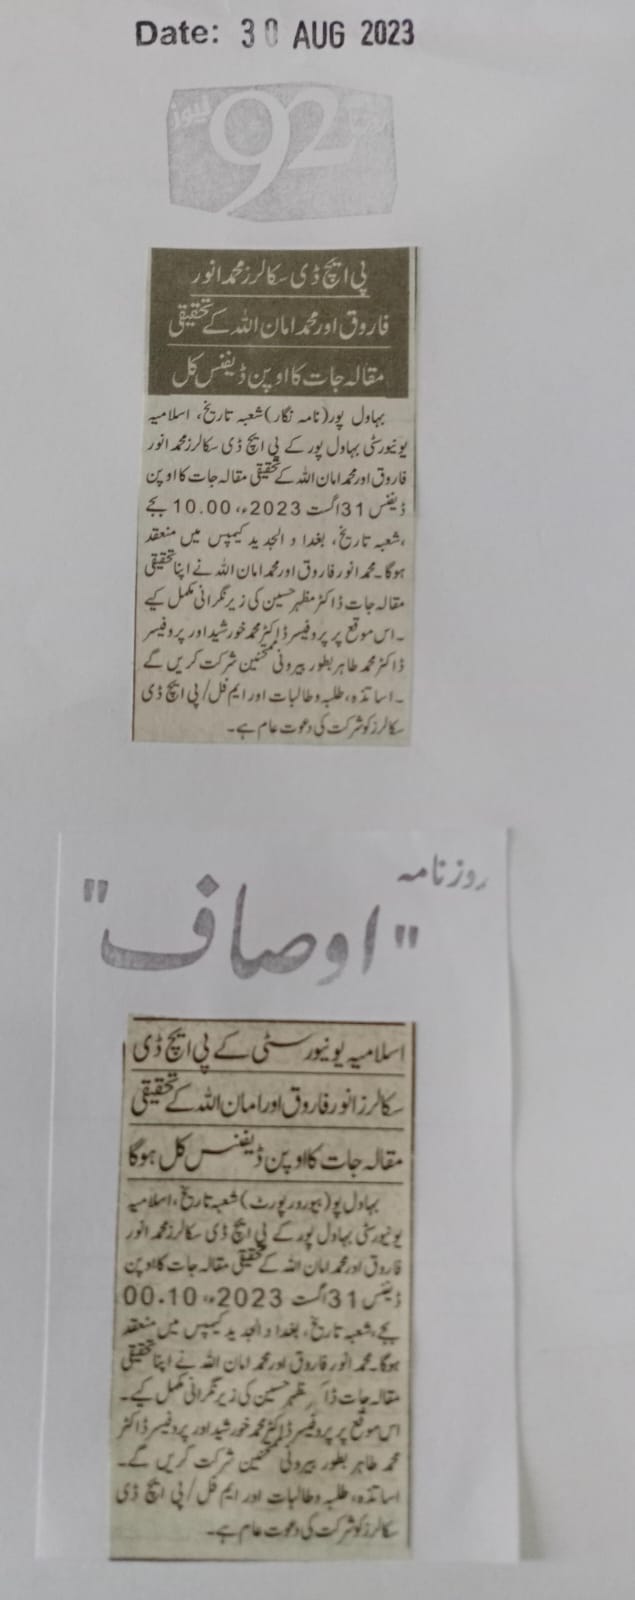 Date: 30 AUG 2023
92
نیوز
پی ایچ ڈی سکالرز محمد انور
فاروق اور محمد امان اللہ کے تحقیقی
مقالہ جات کا اوپن ڈیفنس کل
بہاول پور (نامہ نگار) شعبہ تاریخ، اسلامیہ
یونیورسٹی بہاول پور کے پی ایچ ڈی سکالرز محمد انور
فاروق اور محمد امان اللہ کے تحقیقی مقالہ جات کا اوپن
ڈیفنس 31 اگست 2023ء، 10.00 بجے
،شعبہ تاریخ، بغداد الجدید کیمپس میں منعقد
ہوگا۔ محمد انور فاروق اور محمد امان اللہ نے اپنا تحقیقی
مقالہ جات ڈاکٹر مظہر حسین کی زیر نگرانی مکمل کیے
۔اس موقع پر پروفیسر ڈاکٹر محمد خورشید اور پروفیسر
ڈاکٹر محمد طاہر بطور بیرونی ممتحنین شرکت کریں گے
۔اساتذہ، طلبہ و طالبات اور ایم فل/پی ایچ ڈی
سکالرز کو شرکت کی دعوت عام ہے۔
روزنامہ
"اوصاف"
اسلامیہ یونیورسٹی کے پی ایچ ڈی
سکالرز انور فاروق اور امان اللہ کے تحقیقی
مقالہ جات کا اوپن ڈیفنس کل ہوگا
بہاول پو (بیورو رپورٹ) شعبہ تاریخ، اسلامیہ
یونیورسٹی بہاول پور کے پی ایچ ڈی سکالرز محمد انور
فاروق اور محمد امان اللہ کے تحقیقی مقالہ جات کا اوپن
ڈیفنس 31 اگست 2023ء، 00.10
بجے، شعبہ تاریخ، بغداد الجدید کیمپس میں منعقد
ہوگا۔ محمد انور فاروق اور محمد امان اللہ نے اپنا تحقیقی
مقالہ جات حسین کی زیر نگرانی مکمل کیے۔
اس موقع پر پروفیسر ڈاکٹر محمد خورشید اور پروفیسر ڈاکٹر
محمد طاہر بطور بیرونی ممتحنین شرکت کریں گے۔
اساتذہ، طلبہ و طالبات اور ایم فل/پی ایچ ڈی
سکالرز کو شرکت کی دعوت عام ہے۔